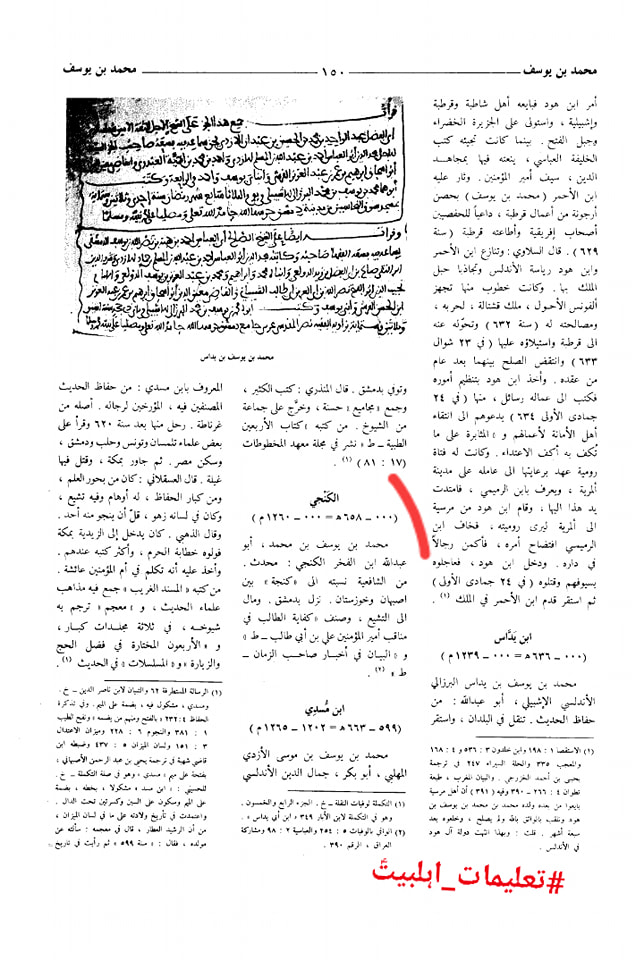 محمد بن يوسف ـــــ ١٥٠ ـــــ محمد بن يوسف
أمر ابن هود فبايعه أهل شاطبة وقرطبة
وإشبيلية ، واستولى على الجزيرة الخضراء
وجبل الفتح . بينما كانت تجيئه كتب
الخليفة العباسي ، ينعته فيها بمجاهد
الدين ، سيف أمير المؤمنين . وثار عليه
ابن الأحمر ( محمد بن يوسف ) بحصن
أرجونة من أعمال قرطبة ، داعياً للحفصيين
أصحاب إفريقية وأطاعته قرطبة ( سنة
٦٢٩ ) . قال السلاوي : وتنازع ابن الأحمر
وابن هود رياسة الأندلس وتجاذبا حبل
الملك بها . وكانت خطوب منها تجهز
ألفونس الأحول ، ملك قشتالة ، لحربه ،
ومصالحته له ( سنة ٦٣٢ ) وتخوّله عنه
الى قرطبة واستيلاؤه عليها ( في ٢٣ شوال
٦٣٣ ) وانتقض الصلح بينهما بعد عام
من عقده . وأخذ ابن هود بتنظيم أموره
فكتب الى عماله رسائل ، منها ( في ٢٤
جمادى الأولى ٦٣٤ ) يدعوهم الى انتقاء
أهل الأمانة لأعمالهم و « المثابرة على ما
تُكف به أكف الاعتداء . وكانت له فتاة
رومية عهد برعايتها الى عامله على مدينة
ألمرية ، ويعرف بابن الرميمي ، فامتدت
يد هذا اليها ، وقام ابن هود من مرسية
الى ألمرية ليرى روميته ، فخاف ابن
الرميمي افتضاح أمره ، فأكمن رجالاً
في داره . ودخل ابن هود ، فعاجلوه
بسيوفهم وقتلوه ( في ٢٤ جمادى الأولى )
ثم استقر قدم ابن الأحمر في الملك (١) .
ابن يَدَّاس
( ٠٠٠ - ٦٣٦ هـ = ٠٠٠ - ١٢٣٩ م )
محمد بن يوسف بن يداس البرزالي
الأندلسي الإشبيلي ، أبو عبدالله : من
حفاظ الحديث . تنقل في البلدان ، واستقر
(١) الاستقصا ١ : ١٩٨ وابن خلدون ٣ : ٥٣٦ و ٤ : ١٦٨
والمعجب ٣٣٥ والحلة السيراء ٢٤٧ في ترجمة
يحيى بن أحمد الخزرجي . والبيان المغرب ، طبعة
تطوان ٤ : ٢٦٦ - ٣٩٠ وفيه ( ٣٩١ ) أن أهل مرسية
بايعوا من بعده ولده محمد بن محمد بن يوسف بن
هود وتلقب بالواثق بالله ولم يصلح ، وخلعوه بعد
سبعة أشهر . قلت : وبهذا انتهت دولة آل هود
في الأندلس .
محمد بن يوسف بن يداس
وتوفي بدمشق . قال المنذري : كتب الكثير ،
وجمع « مجاميع » حسنة ، وخرَّج على جماعة
من الشيوخ . من كتبه « كتاب الأربعين
الطبية - ط » نشر في مجلة معهد المخطوطات
( ١٧ : ٨١ ) (١) .
الكَنْجي
( ٠٠٠ - ٦٥٨ هـ = ٠٠٠ - ١٢٦٠ م )
محمد بن يوسف بن محمد ، أبو
عبدالله ابن الفخر الكنجي : محدث .
من الشافعية نسبته الى « كنجة » بين
اصبهان وخوزستان . نزل بدمشق . ومال
الى التشيع ، وصنف « كفاية الطالب في
مناقب أمير المؤمنين علي بن أبي طالب - ط »
و « البيان في أخبار صاحب الزمان -
ط » (٢) .
ابن مُسْدِي
( ٥٩٩ - ٦٦٣ هـ = ١٢٠٢ - ١٢٦٥ م )
محمد بن يوسف بن موسى الأزدي
المهلبي ، أبو بكر ، جمال الدين الأندلسي
(١) التكملة لوفيات النقلة - خ . الجزء الرابع والخمسون .
وهو في التكملة لابن الأبار ٣٤٩ « ابن أبي يداس » .
(٢) الوافي بالوفيات ٥ : ٢٥٤ والعباسية ٢ : ٩٨ ومشاركة
العراق ، الرقم ٣٩٠ .
المعروف بابن مسدي : من حفاظ الحديث
المصنفين فيه ، المؤرخين لرجاله . أصله من
غرناطة . رحل منها بعد سنة ٦٢٠ وقرأ على
بعض علماء تلمسان وتونس وحلب ودمشق ،
وسكن مصر . ثم جاور بمكة ، وقتل فيها
غيلة . قال العسقلاني : كان من بحور العلم ،
ومن كبار الحفاظ ، له أوهام وفيه تشيع ،
وكان في لسانه زهو ، قلّ أن ينجو منه أحد .
وقال الذهبي . كان يدخل إلى الزيدية بمكة
فولوه خطابة الحرم ، وأكثر كتبه عندهم .
وأخذ عليه أنه تكلم في أم المؤمنين عائشة .
من كتبه « المسند الغريب » جمع فيه مذاهب
علماء الحديث ، و « معجم » ترجم به
شيوخه ، في ثلاثة مجلدات كبار ،
و « الأربعون المختارة في فضل الحج
والزيارة » و « المسلسلات » في الحديث (١) .
(١) الرسالة المستطرفة ٦٢ والتبيان لابن ناصر الدين - خ .
ومسدي ، مشكول فيه ، بضمة على الميم . وفي تذكرة
الحفاظ ٤ : ٢٣٢ « بالفتح ومنهم من يضمه » ونفح الطيب
١ : ٣٨١ والنجوم ٦ : ٢٢٨ وميزان الاعتدال
٣ : ١٥١ ولسان الميزان ٥ : ٤٣٧ وضبطه ابن
قاضي شهبة في ترجمة يحيى بن عبد الرحمن الأصبهاني ،
بفتحة على ميم « مسدي » وهو في صلة التكملة - خ .
للحسيني : « ابن مسد » مشكولا ، بخطه ، بضمة
على الميم وسكون على السين وكسرتين تحت الدال .
واعتمدت في تأريخ ولادته على ما في لسان الميزان ،
من أن الرشيد العطار ، قال في معجمه : سألته عن
مولده ، فقال : « سنة ٥٩٩ » ثم رأيت في تاريخ
#تعليمات_اهلبيتؑ